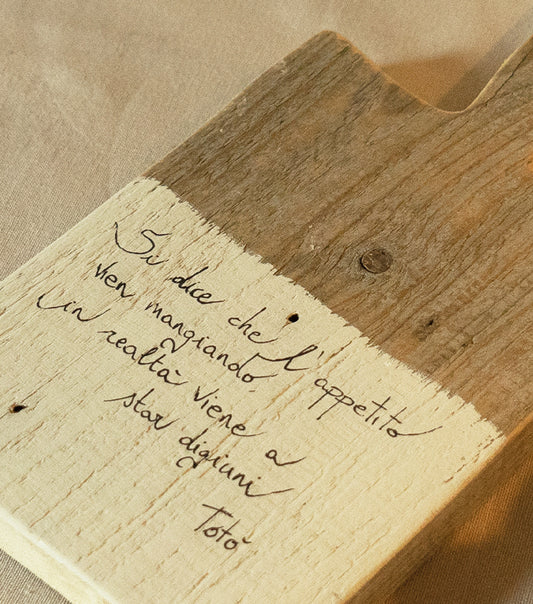 Si dice che l'appetito
vien mangiando,
in realtà viene a
star digiuni
Totò